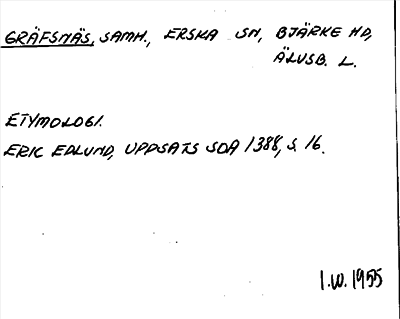 GRÄFSNÄS, SAMH., ERSKA SN, BJÄRKE HD,
ÄLVSB. L.
ETYMOLOGI.
ERIC EDLUND, UPPSATS SOA 1388, S. 16.
1.10.1955